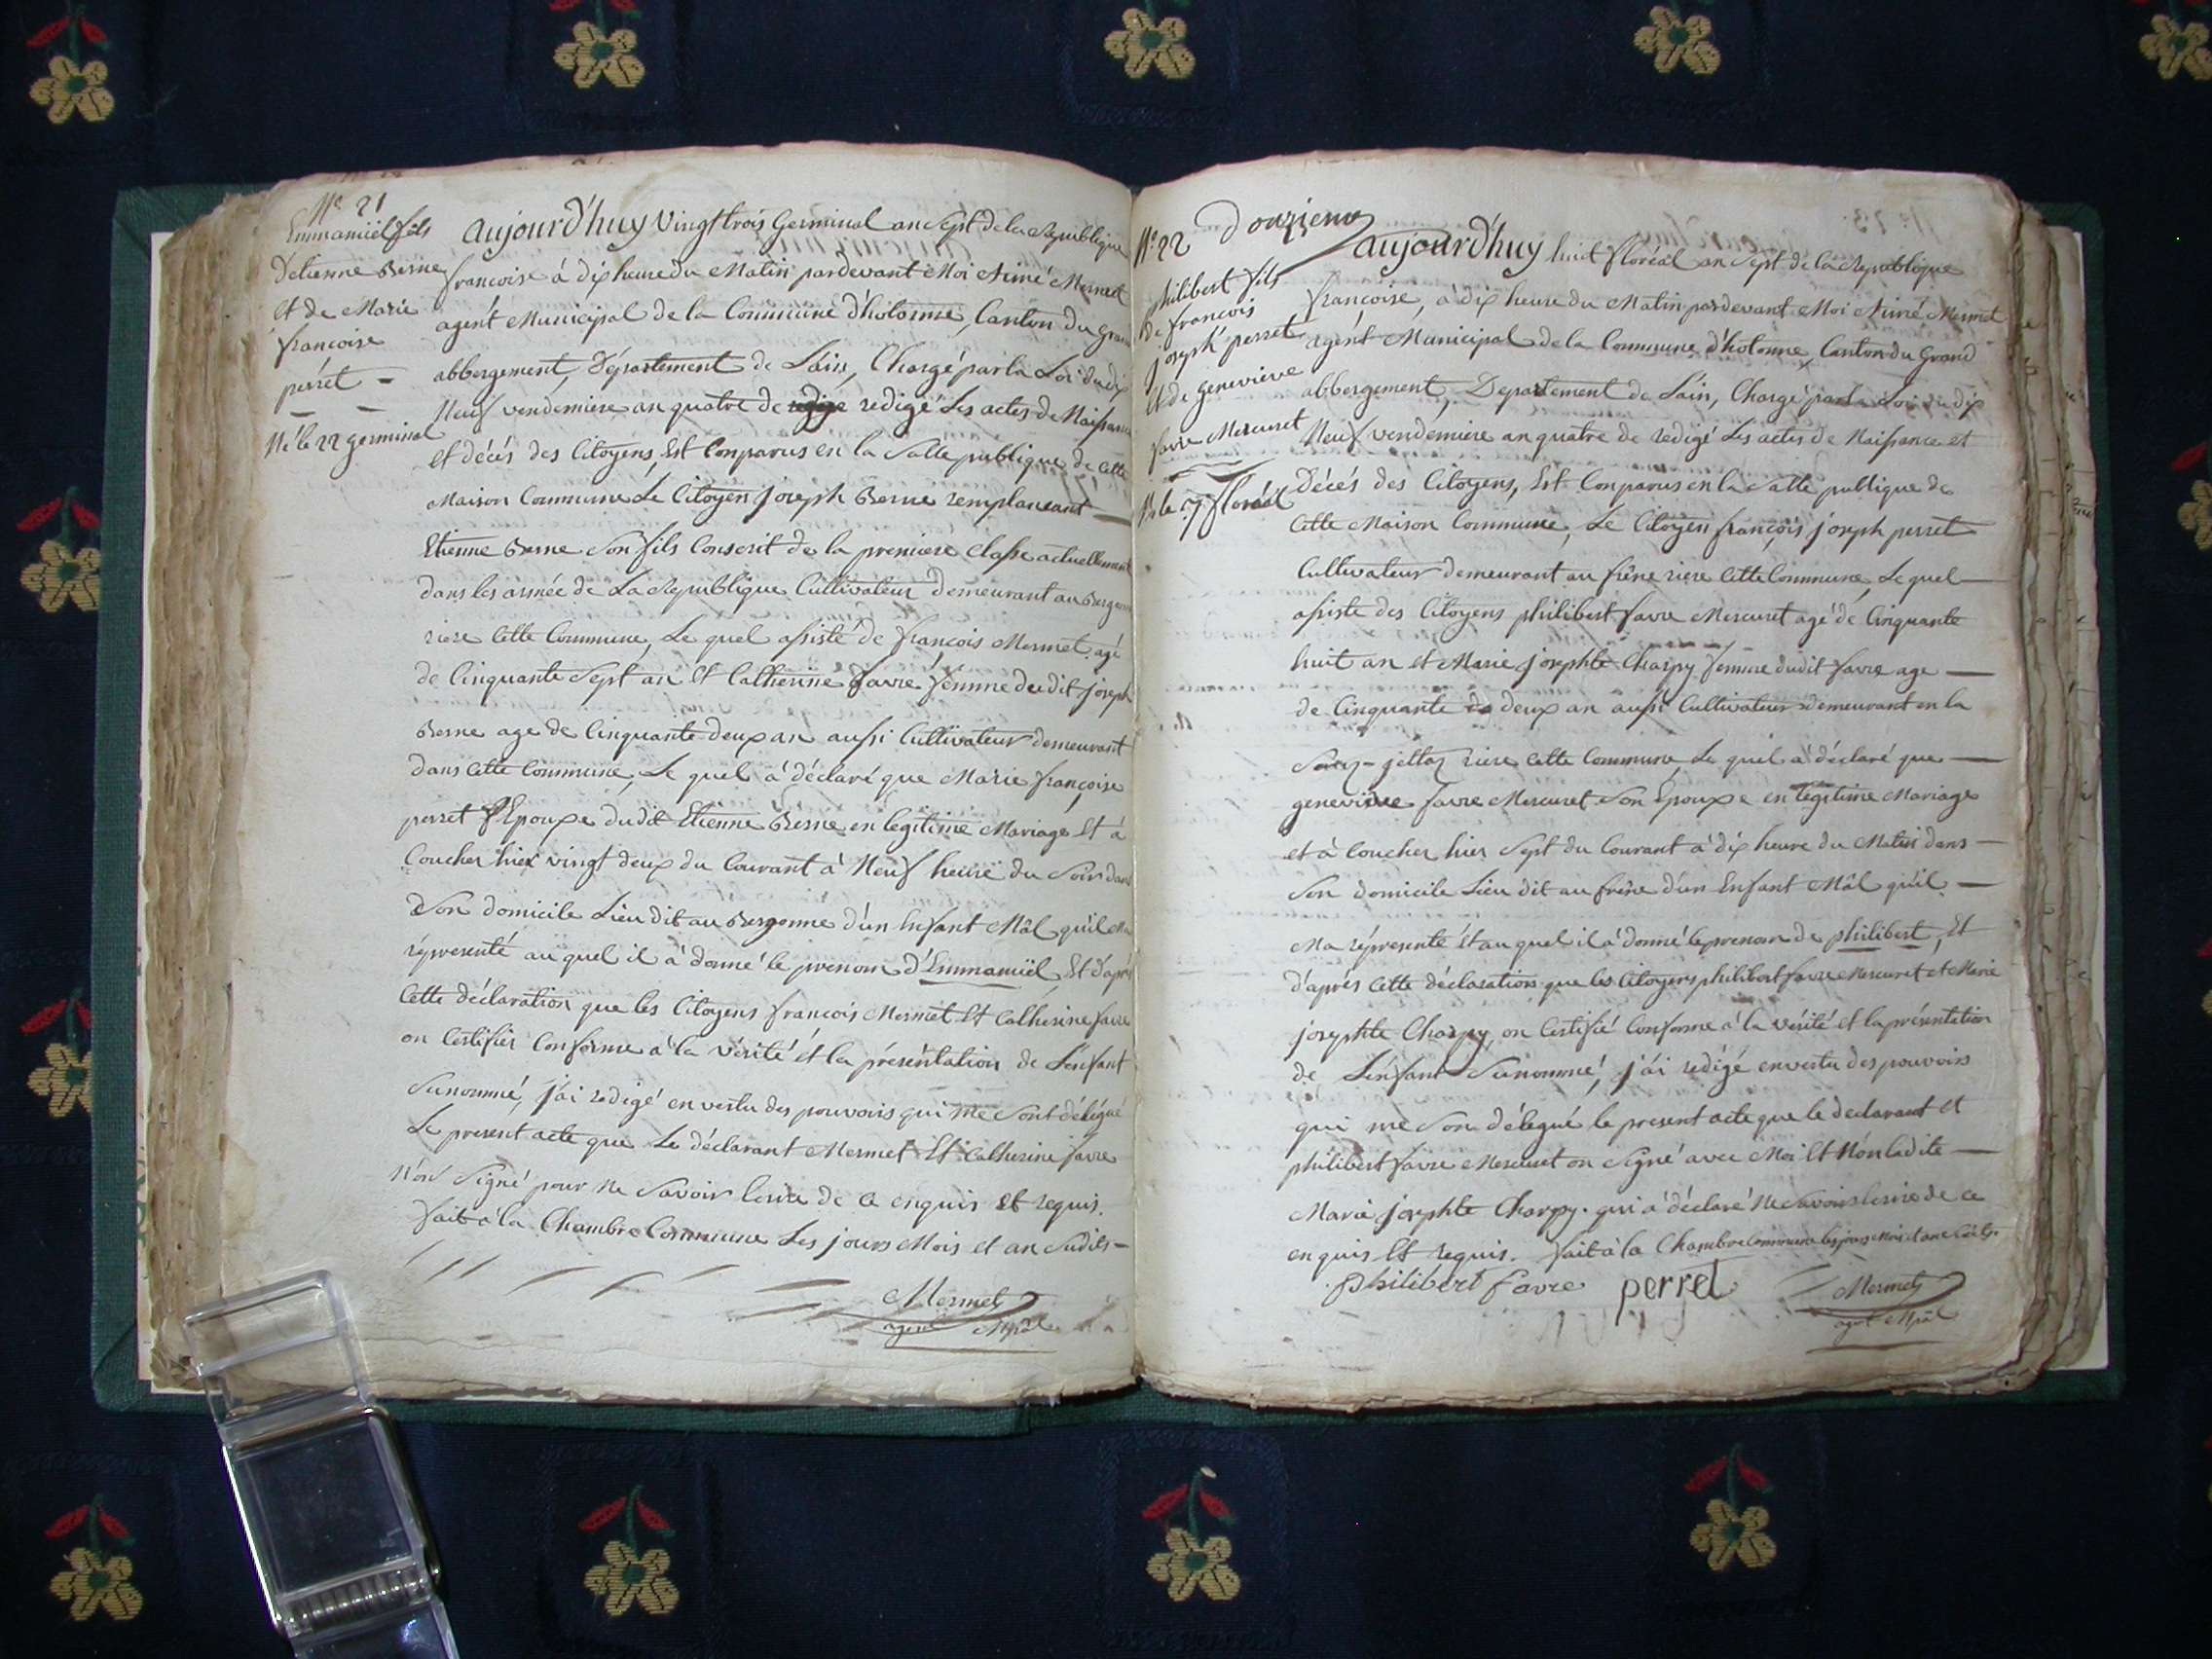 N.° 21
Emmanuël fils
D'etienne Berne
Et de Marie
francoise
perret
Né le 22 germinal
aujourd'huy vingt trois Germinal an sept de la Republique
francoise à dix heure du Matin pardevant Moi Aimé Mermet
agent Municipal de la Commune d'hotonne, Canton du Grand
abbergement, Département de Lain, Chargé par la Loi du dix
Neuf vendemiere an quatre de redigé Les actes de Naissance
et décés des Citoyens, Est Conparus en la Salle publique de cette
Maison Commune Le Citoyen joseph Berne remplaceant
Etienne Berne Son fils Conscrit de la premiere Classe actuellement
dans les armée de La Republique Cultivateur demeurant au Bergonne
riere Cette Commune, Le quel assisté de francois Mermet agé
de Cinquante Sept an Et Catherine favre femme dudit joseph
Berne age de Cinquante deux an aussi Cultivateur demeurant
dans Cette Commune, Le quel à déclaré que Marie françoise
perret Epouxe dudit Etienne Berne en legitime Mariage Et à
Coucher hier vingt deux du Courant à Neuf heure du Soir dans
Son domicile Lieu dit au Bergonne d'un Enfant Mâl qu'il Ma
répresenté au quel il à donné le prenom d'Emmanuël, Et d'aprés
Cette déclaration que les Citoyens francois Mermet Et Catherine favre
on Certifier Conforme à la vérité et la présentation de L'enfant
Sunommé, j'ai redigé en vertu des pouvoirs qui me Sont délégué
Le present acte que Le déclarant Mermet Et Catherine favre
N'on Signé pour Ne Savoir Ecrire de ce enquis Et requis.
fait à la Chambre Commune Les jours Mois et an Sudits
Mermet
agent Mpäl
N.° 22
Douzieme
philibert fils
De francois
joseph perret
Et de genevieve
favre Mercuret
N. le 7 floréal
aujourd'huy huit floréal an Sept de la Republique
françoise, à dix heure du Matin pardevant Moi Aimé Mermet
agent Municipal de la Commune d'hotonne, Canton du Grand
abbergement, Departement de Lain, Chargé par la Loi du dix
Neuf vendemiere an quatre de redigé Les actes de Naissance et
Décés des Citoyens, Est Conparus en la Salle publique de
Cette Maison Commune, Le Citoyen françois joseph perret
Cultivateur demeurant au frêne riere Cette Commune, Le quel
assiste des Citoyens philibert favre Mercuret agé de Cinquante
huit an et Marie josephte Charpy femme dudit favre age
de Cinquante deux an aussi Cultivateur demeurant en la
riere cette Commune, Le quel à déclaré que
genevieve favre Mercuret Son Epouxe en legitime Mariage
et à Coucher hier Sept du Courant à dix heure du Matin dans
Son domicile Lieu dit au frêne d'un Enfant Mâl qu'il
Ma répresenté Et au quel il à donné le prenom de philibert, Et
d'aprés Cette déclaration que les Citoyens philibert favre Mercuret et Marie
josephte Charpy, on Certifié Conforme à la vérité et la présentation
de L'enfant Sunommé, j'ai redigé en vertu des pouvoirs
qui me Son délegué le present acte que le declarant et
philibert favre Mercuret on Signé avec Moi Et Non ladite
Marie josephte Charpy qui à déclaré Ne Savoir Ecrire de ce
enquis Et requis. fait à la Chambre Commune les jours Mois et an
philibert favre perret Mermet
agent Mpäl